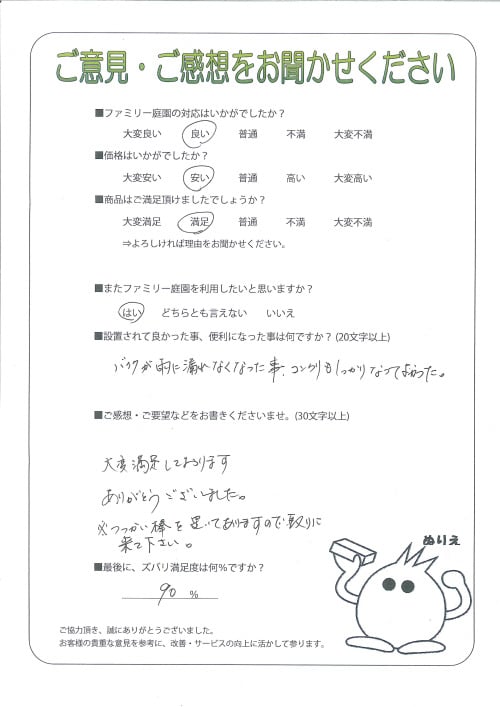 ご意見・ご感想をお聞かせください
■ファミリー庭園の対応はいかがでしたか？
大変良い 良い 普通 不満 大変不満
■価格はいかがでしたか？
大変安い 安い 普通 高い 大変高い
■商品はご満足頂けましたでしょうか？
大変満足 満足 普通 不満 大変不満
⇒よろしければ理由をお聞かせください。
■またファミリー庭園を利用したいと思いますか？
はい どちらとも言えない いいえ
■設置されて良かった事、便利になった事は何ですか？(20文字以上)
バイクが雨に濡れなくなった事、コンクリもしっかりなってよかった。
■ご感想・ご要望などをお書きくださいませ。(30文字以上)
大変満足しております
ありがとうございました。
※つっかい棒を置いてありますので取りに
来て下さい。
ぬりえ
■最後に、ズバリ満足度は何％ですか？
90 %
ご協力頂き、誠にありがとうございました。
お客様の貴重な意見を参考に、改善・サービスの向上に活かして参ります。